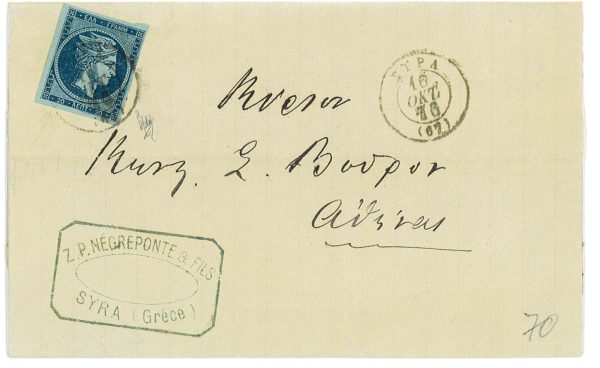 ΕΛΛ. ΓΡΑΜΜ.
20 ΛΕΠΤ. 20
ΣΥΡΑ
16
ΟΚΤ.
75
(67)
Κύριον
Κωνσ. Σ. Βούρον
Αθήνας
Z. P. NEGREPONTE & FILS
SYRA (Grèce)
70